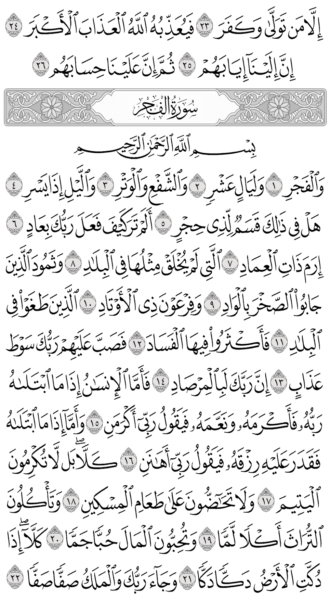 إِلَّا مَن تَوَلَّىٰ وَكَفَرَ ٢٣ فَيُعَذِّبُهُ اللَّهُ الْعَذَابَ الْأَكْبَرَ ٢٤
إِنَّ إِلَيْنَا إِيَابَهُمْ ٢٥ ثُمَّ إِنَّ عَلَيْنَا حِسَابَهُم ٢٦
سُورَةُ الْفَجْرِ
بِسْمِ اللَّهِ الرَّحْمَٰنِ الرَّحِيمِ
وَالْفَجْرِ ١ وَلَيَالٍ عَشْرٍ ٢ وَالشَّفْعِ وَالْوَتْرِ ٣ وَاللَّيْلِ إِذَا يَسْرِ ٤
هَلْ فِي ذَٰلِكَ قَسَمٌ لِّذِي حِجْرٍ ٥ أَلَمْ تَرَ كَيْفَ فَعَلَ رَبُّكَ بِعَادٍ ٦
إِرَمَ ذَاتِ الْعِمَادِ ٧ الَّتِي لَمْ يُخْلَقْ مِثْلُهَا فِي الْبِلَادِ ٨ وَثَمُودَ الَّذِينَ
جَابُوا الصَّخْرَ بِالْوَادِ ٩ وَفِرْعَوْنَ ذِي الْأَوْتَادِ ١٠ الَّذِينَ طَغَوْا فِي
الْبِلَادِ ١١ فَأَكْثَرُوا فِيهَا الْفَسَادَ ١٢ فَصَبَّ عَلَيْهِمْ رَبُّكَ سَوْطَ
عَذَابٍ ١٣ إِنَّ رَبَّكَ لَبِالْمِرْصَادِ ١٤ فَأَمَّا الْإِنسَانُ إِذَا مَا ابْتَلَاهُ
رَبُّهُ فَأَكْرَمَهُ وَنَعَّمَهُ فَيَقُولُ رَبِّي أَكْرَمَنِ ١٥ وَأَمَّا إِذَا مَا ابْتَلَاهُ
فَقَدَرَ عَلَيْهِ رِزْقَهُ فَيَقُولُ رَبِّي أَهَانَنِ ١٦ كَلَّا ۖ بَل لَّا تُكْرِمُونَ
الْيَتِيمَ ١٧ وَلَا تَحَاضُّونَ عَلَىٰ طَعَامِ الْمِسْكِينِ ١٨ وَتَأْكُلُونَ
التُّرَاثَ أَكْلًا لَّمًّا ١٩ وَتُحِبُّونَ الْمَالَ حُبًّا جَمًّا ٢٠ كَلَّا ۖ إِذَا
دُكَّتِ الْأَرْضُ دَكًّا دَكًّا ٢١ وَجَاءَ رَبُّكَ وَالْمَلَكُ صَفًّا صَفًّا ٢٢